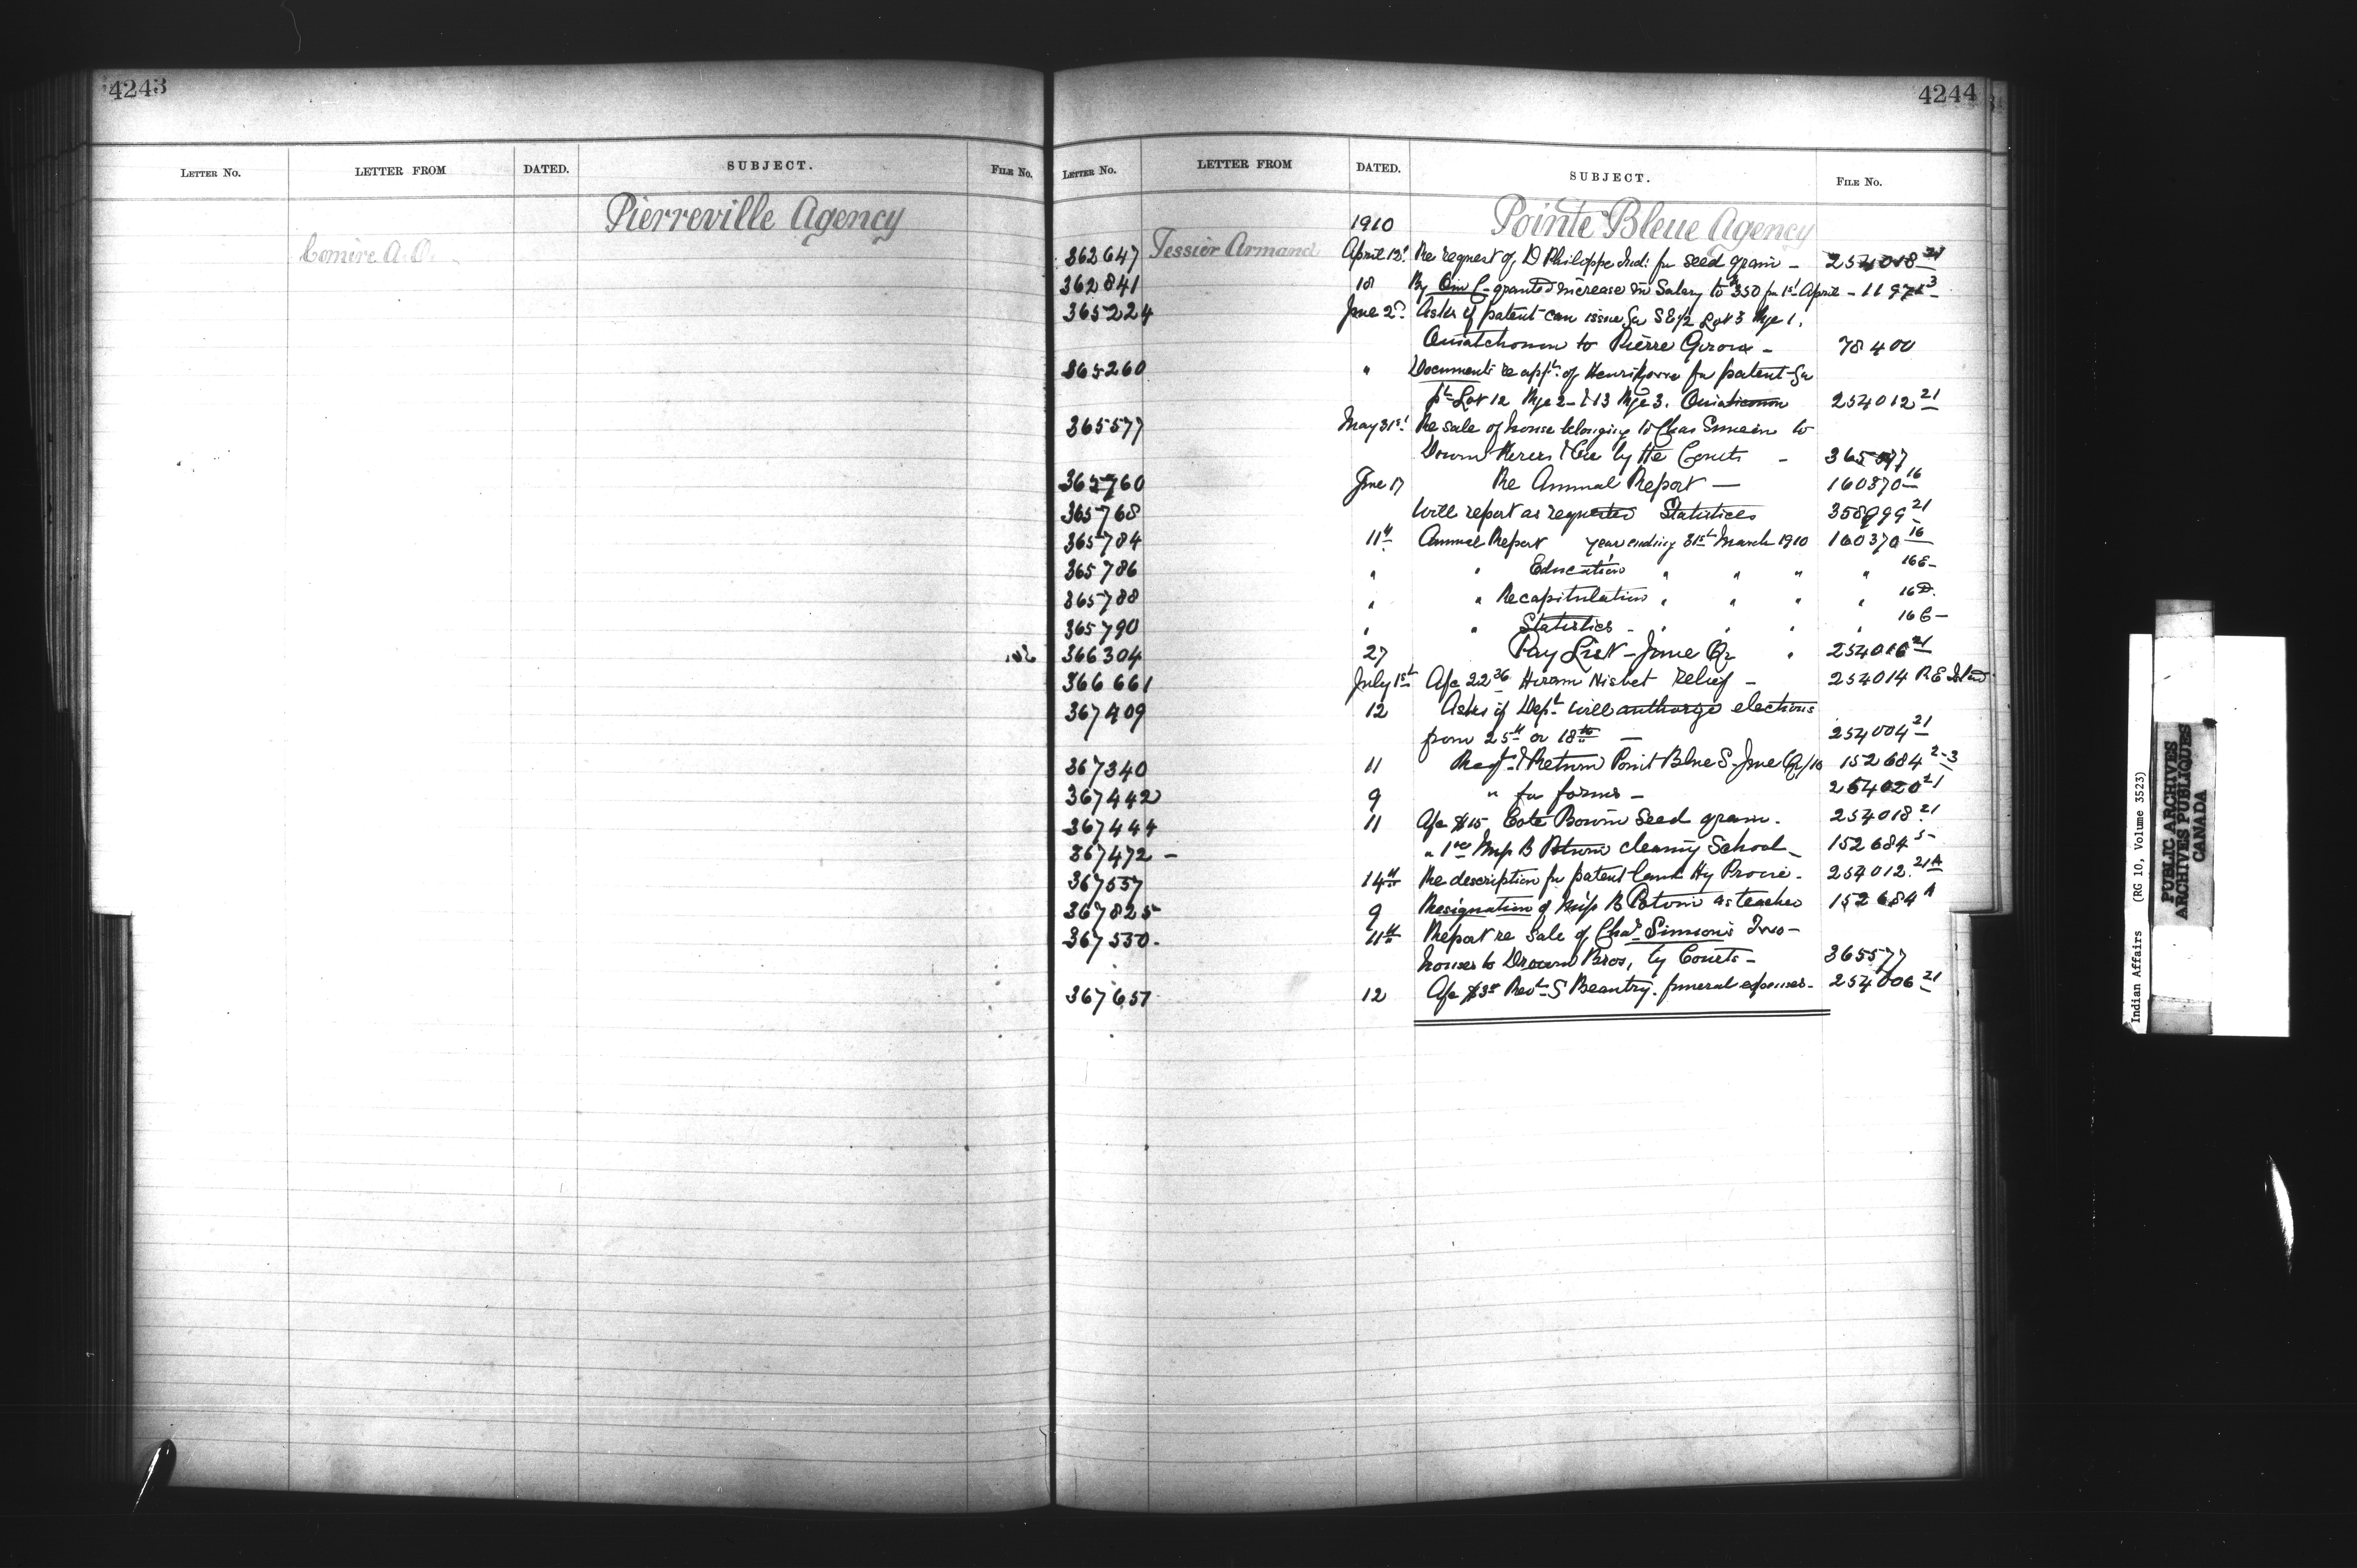 4243
LETTER No. LETTER FROM DATED. SUBJECT. FILE No.
Pierreville Agency
Comire A. O.
4244
LETTER No. LETTER FROM DATED. SUBJECT. FILE No.
1910 Pointe Bleue Agency
362647 Tessier Armand April 13 Re request of D Philippe Ind: for seed grain - 254018 21
362841 18 By Oin C. granted increase in Salary to $350 fm 1st April - 11971 3
365224 June 2 Asks if patent can issue for S E 1/2 Lot 3 Rge 1.
Ouiatchouan to Pierre Giroux - 78400
365260 " Documents re appln. of Henri for patent for
pt Lot 12 Rge 2 - & 13 Rge 3. 254012 21
365577 May 31st Re sale of house belonging to Chas Simeon to
by the Courts - 365577
365760 June 17 Re Annual Report - 160370-16
365768 Will report as requested Statistics 358999 21
365784 11th Annual Report year ending 31st March 1910 160370 16
365786 " " Education " " " " 16E-
365788 " " Recapitulation " " " " 16D.
365790 " " Statistics - " " " " 16C-
366304 27 Pay List - June Qr " 254016 21
366661 July 1st A/c 22 36 Hiram Nisbet relief - 254014 R E
367409 12 Asks if Dept. will authorize elections
from 25th or 18th - 254004 21
367340 11 Reqn. & Return Point Blue S. June Qr/10 152684 2-3
367442 9 " for forms - 254020 21
367444 11 A/c $15 seed grain. 254018 21
367472 - " 1 Miss B Potvin cleaning School - 152684 5-
367557 14th Re description for patent land Hy 254012. 21A
367825 9 Resignation of Miss B Potvin as teacher 152684 A
367550. 11th Report re sale of Chas Simeon's two -
houses to Bros, by Courts - 365577
367657 12 A/c $3 Revd. S Beautry. funeral expenses - 254006 21
Indian Affairs (RG 10, Volume 3523)
PUBLIC ARCHIVES
ARCHIVES PUBLIQUES
CANADA